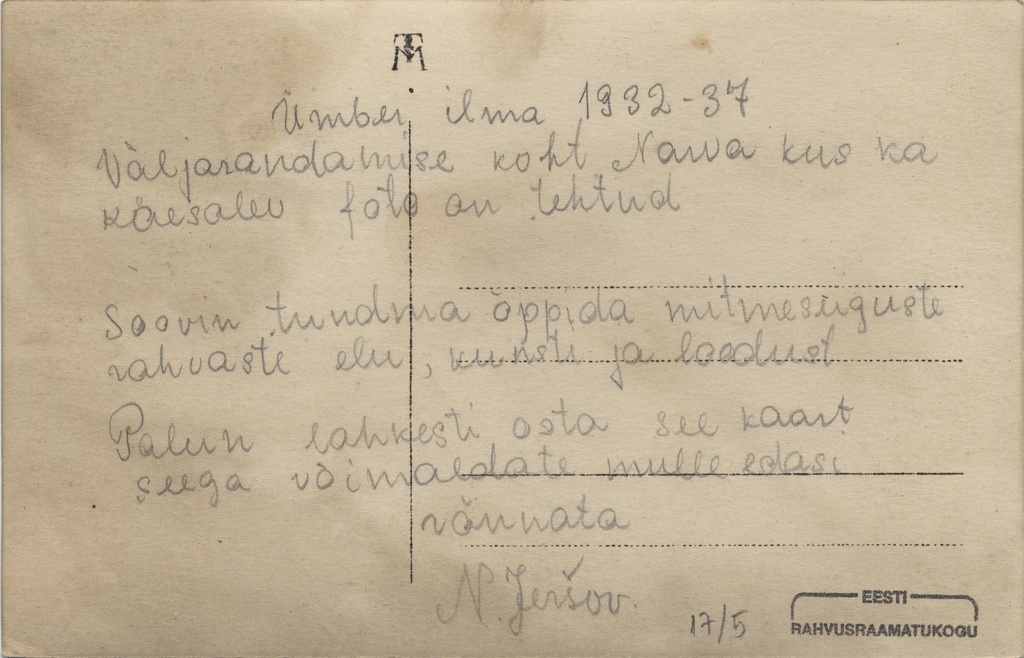 TM
Ümber ilma 1932-37
Väljarandamise koht Narva kus ka
käesalev foto on tehtud
Soovin tundma õppida mitmesuguste
rahvaste elu, kunsti ja loodust
Palun lahkesti osta see kaart
seega võimaldate mulle edasi
rännata
N. Jeršov.
17/5
EESTI
RAHVUSRAAMATUKOGU